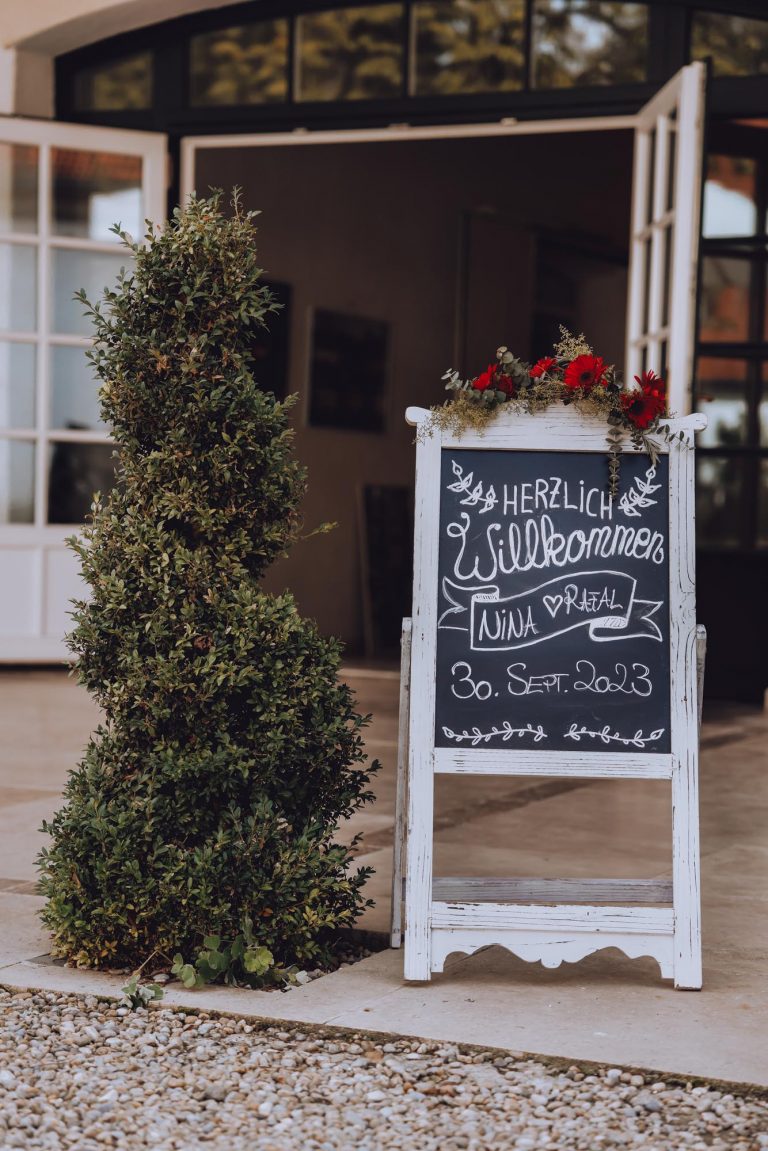 HERZLICH
Willkommen
NiNA ♡ RAFAL
30. SEPT. 2023